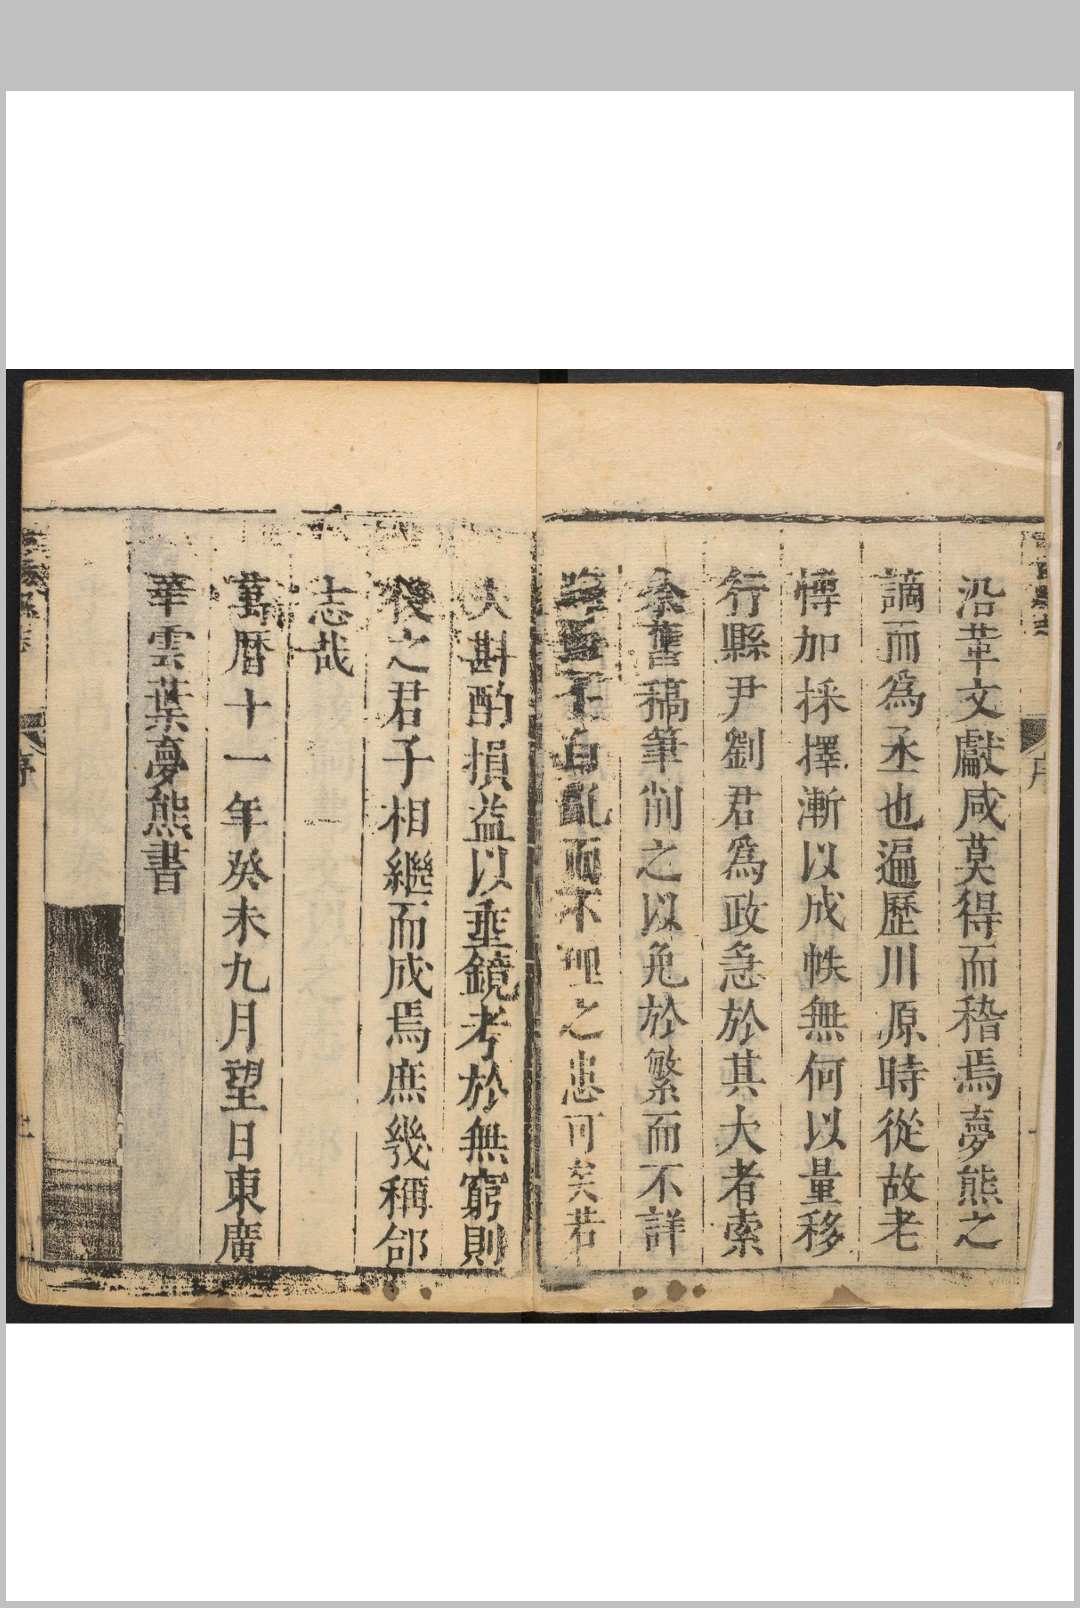 沿革文獻咸莫得而稽焉夢熊之
謫而爲丞也遍歷川原時從故老
慱加採擇漸以成帙無何以量移
行縣尹劉君爲政急於其大者索
余舊稿筆削之以免於繁而不詳
而不理之恚可矣若
夫斟酌損益以垂鏡考於無窮則
後之君子相繼而成焉庶幾稱郃
志哉
萬曆十一年癸未九月望日東廣
華雲葉夢熊書
序